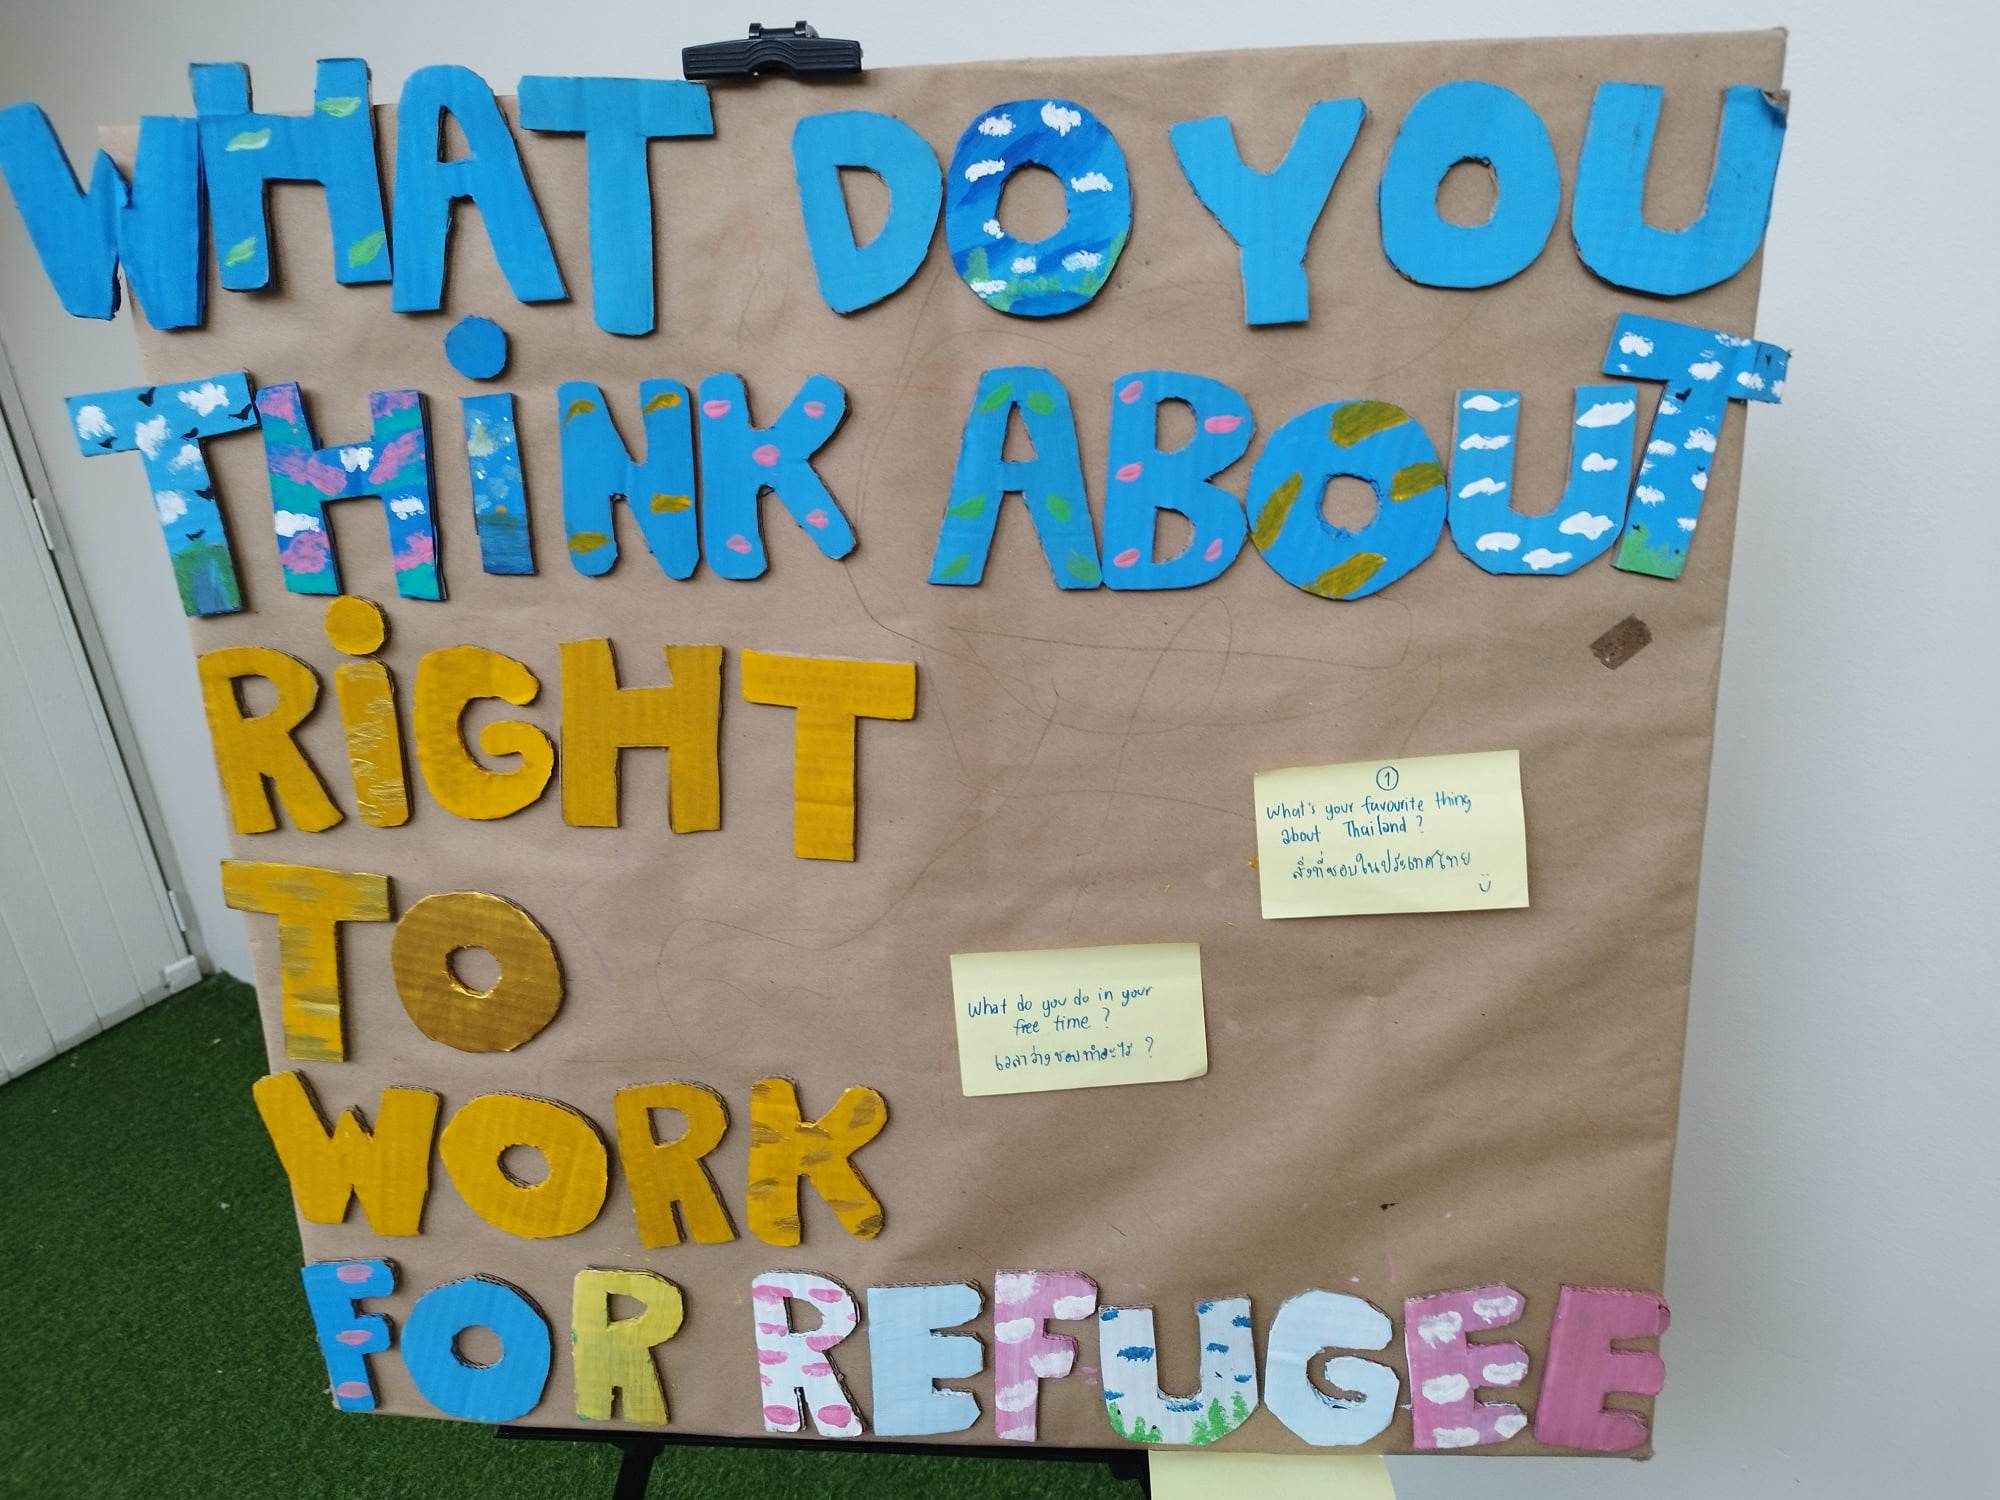 WHAT DO YOU
THiNK ABOUT
RiGHT
TO
WORK
FOR REFUGEE
1
What's your favourite thing
about Thailand?
สิ่งที่ชอบในประเทศไทย
What do you do in your
free time?
เวลาว่างชอบทำอะไร?